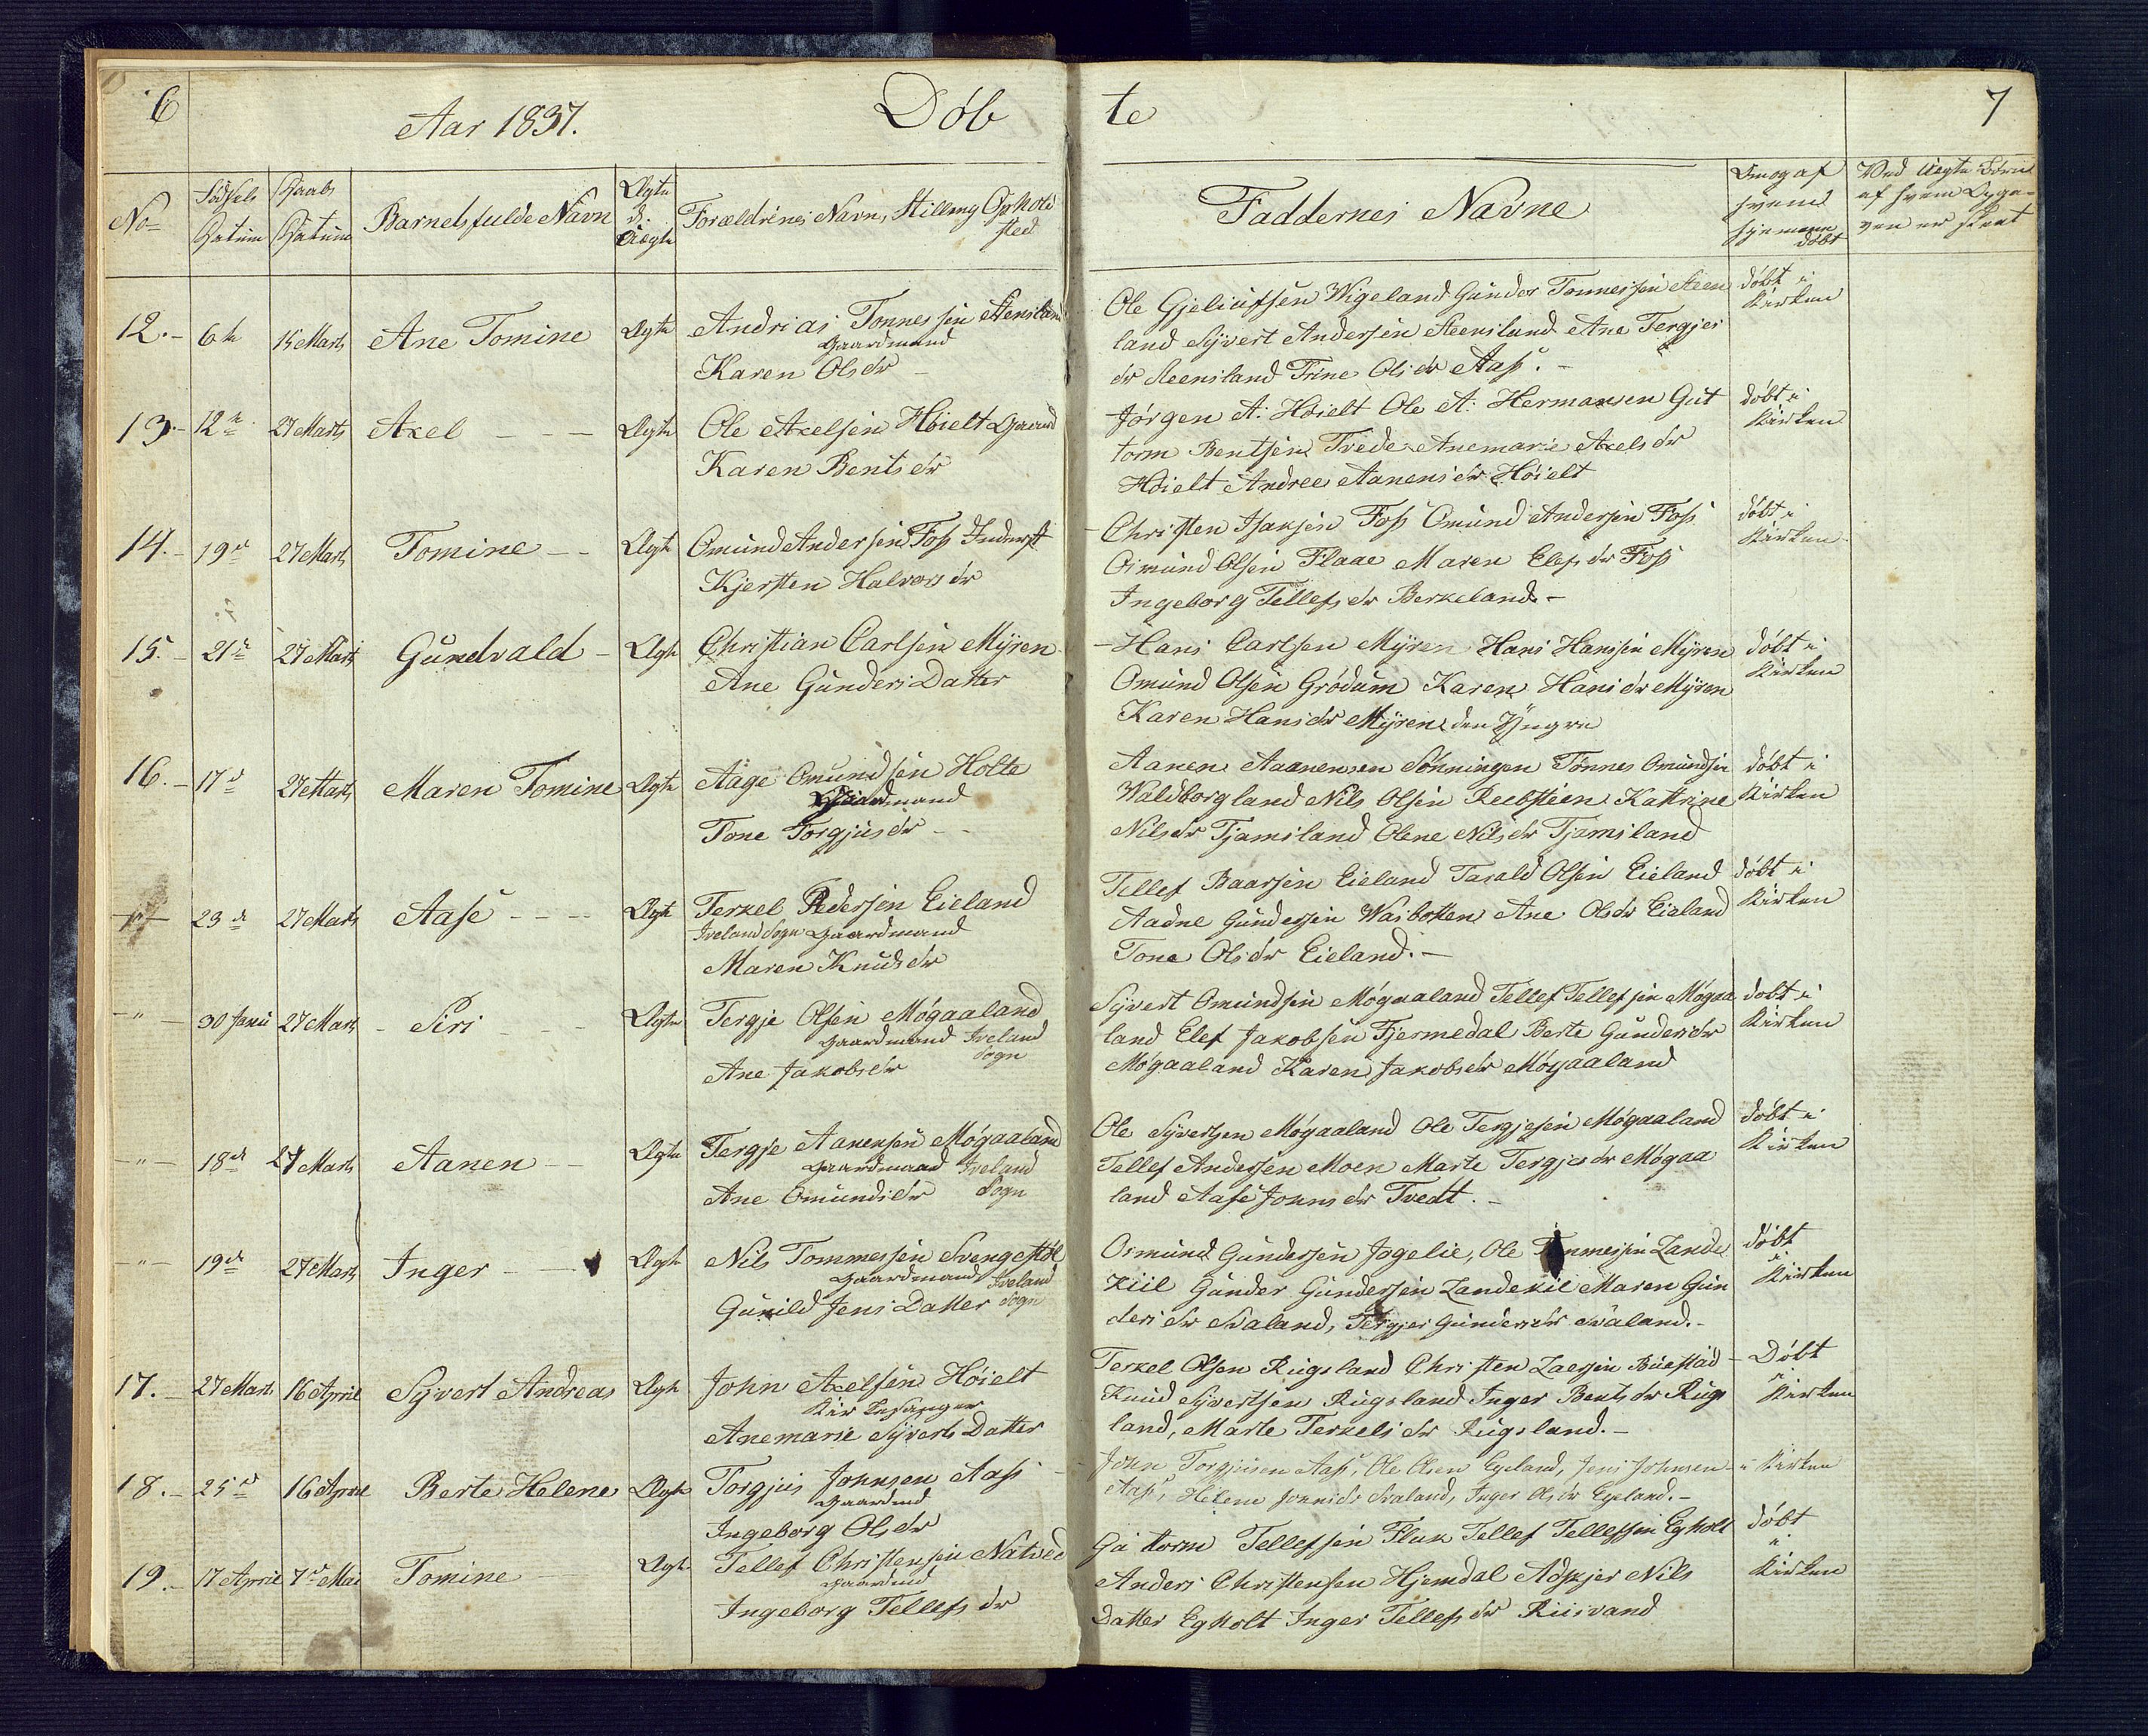 6
Aar 1837.
Döb
te
7
No
Fødsels Datum
Daabs Datum
Barnets fulde Navn
Ægte d. Uægte
Forældrenes Navn, Stilling Opholdsted
Faddernes Navne
Om og af hvem hjemme döbt
Ved Uægte Börn af hvem Opgaven er skeet
12.- 6te 15 Marts Ane Tomine Ægte Andrias Tonnessen Stensland
Gaardmand
Karen Olsdr -
Ole Gjeliufsen Wigeland Gunder Tonnessen Steens
land Syvert Andersen Steensland Ane Tergjes
dr Steensland Trine Olsdr Aass. -
döbt i
Kirken
13.- 12te 27 Marts Axel - - - Ægte Ole Axelsen Höielt Gaardmd
Karen Bentsdr
Jörgen A: Höielt Ole A: Hermansen Gut
torm Bentsen Tvede Anemarie Axelsdr
Höielt Andree Aanensdr Höielt
döbt i
Kirken
14.- 19de 27 Marts Tomine - - Ægte Omund Andersen Foss Inderst
Kjersten Halvorsdr
- Christen Isaksen Foss Omund Andersen Foss
Osmund Olsen Flaae Maren Elefsdr Foss
Ingeborg Tellefsdr Berkeland. -
döbt i
Kirken
15.- 21de 27 Marts Gundvald - Ægte Christian Carlsen Myren
Ane Gunders Datter
- Hans Carlsen Myren Hans Hansen Myren
Omund Olsen Grödum Karen Hansdr Myren
Karen Hansdr Myren den Yngre
döbt i
Kirken
16.- 17de 27 Marts Maren Tomine Ægte Aage Omundsen Holte
Gaardmand
Tone Torgjusdr - -
Aanen Aaanensen Sönningen Tönnes Omundsen
Waldborgland Nils Olsen Reebsteen Kattrine
Nilsdr Tjamsland Olene Nilsdr Tjomsland
döbt i
Kirken
23de 27 Marts Aase - - - Ægte Terkel Pedersen Eieland
Iveland Sogn Gaardmand
Maren Knudsdr
Tellef Baarsen Eieland Tarald Olsen Eieland
Aadne Gundersen Wasbotten Ane Olsdr Eieland
Tone Olsdr Eieland. -
döbt i
Kirken
- " - 30 Janu 27 Marts - Siri - - Ægte Tergje Olsen Mögaaland
Gaardmand Iveland
Sogn
Ane Jakobsdr
Syvert Omundsen Mögaaland Tellef Tellefsen Mögaa
land Elef Jakobsen Tjermedal Berte Gundersdr
Mögaaland Karen Jakobsdr Mögaaland
döbt i
Kirken
- " - 18de 27 Marts Aanen - - Ægte Tergje Aanensen Mögaaland
Gaardmand Iveland
Ane Omundsdr Sogn
Ole Syvertsen Mögaaland Ole Tergjesen Mögaaland
Tellef Andersen Moen Marte Tergjesdr Mögaa
land Aase Johnsdr Tvedt. -
döbt i
Kirken
- " - 19de 27 Marts Inger - - Ægte Nils Tommesen Svengestöl
Gaardmand Iveland
Gunild Jens Datter Sogn
Osmund Gundersen Jogelie, Ole Tommesen Lande
kiil Gunder Gundersen Landekil Maren Gun
dersdr Svaland, Tergjer Gundersdr Svaland. -
döbt
i
Kirken
17.- 27 Marts 16 April Syvert Andreas Ægte John Axelsen Höielt
Kirkesanger
Anemarie Syverts Datter
Terkel Olsen Rugsland Christen Larsen Buestad -
Knud Syvertsen Rugsland Inger Bentsdr Rugs
land, Marte Terkelsdr Rugsland. -
Döbt
i
Kirken
18.- 25de 16 April Berte Helene Ægte Torgjus Johnsen Aass -
Gaardmd
Ingeborg Olsdr
John Torgjusen Aass, Ole Olsen Egeland, Jens Johnsen -
Aass, Helene Jonnsdr Svaland, Inger Olsdr Egeland. -
i Kirken
19.- 17 April 7de Mai Tomine - Ægte Tellef Christensen Natved
Gaardmd
Ingeborg Tellefsdr
Guttorm Tellefsen Fluk Tellef Tellefsen Egholt
Anders Christensen Hjemdal Adskjer Nils
Datter Egholt Inger Tellefsdr Riisvand
döbt
i
Kirken